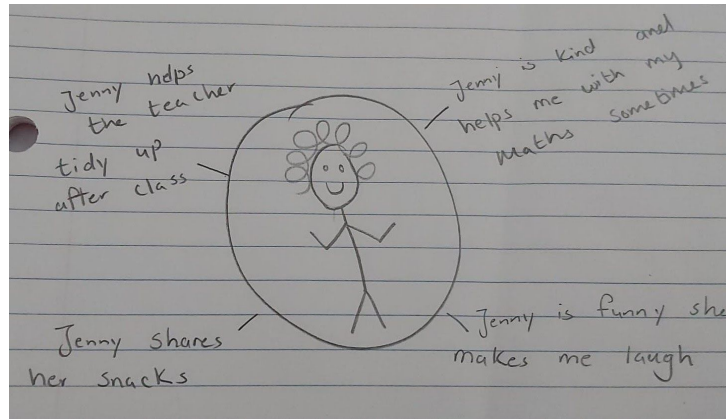 Jenny helps
the teacher
tidy up
after class
Jenny is kind and
helps me with my
maths sometimes
Jenny shares
her snacks
Jenny is funny she
makes me laugh